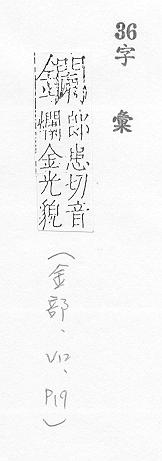 36字彙
鑭
郎患切音
爛金光貌
(金部、V12、P19)